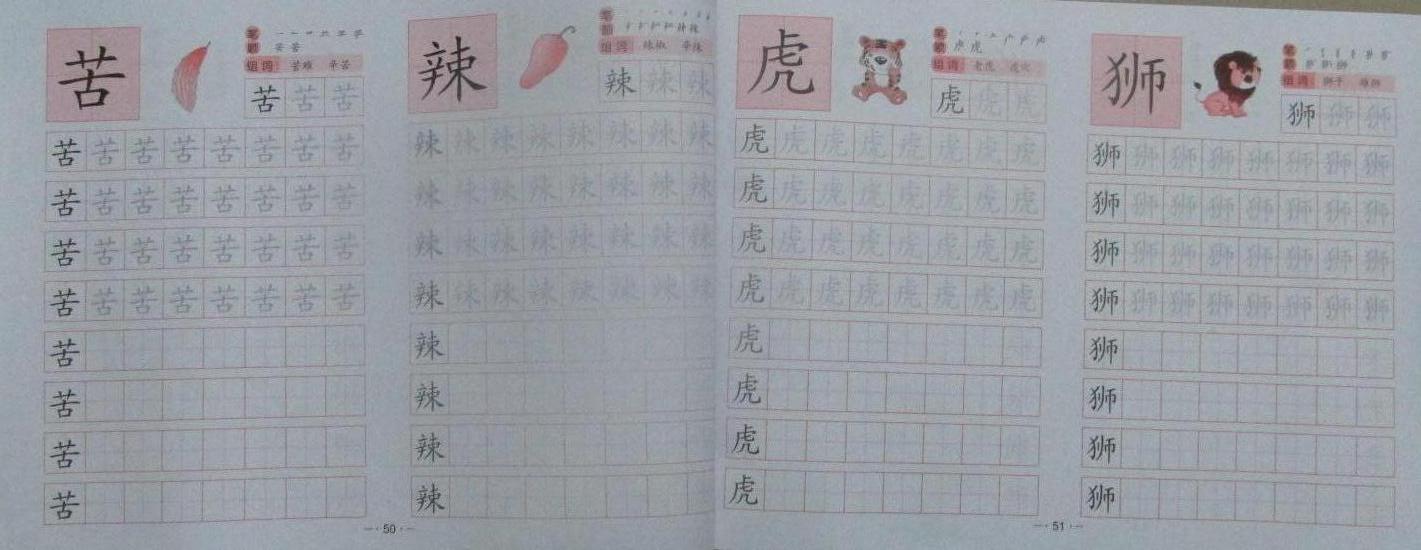 苦
笔顺
组词 苦难 辛苦
苦 苦 苦
苦 苦 苦 苦 苦 苦 苦 苦
苦 苦 苦 苦 苦 苦 苦 苦
苦 苦 苦 苦 苦 苦 苦 苦
苦 苦 苦 苦 苦 苦 苦 苦
苦
苦
苦
苦
辣
笔顺
组词 辣椒 辛辣
辣 辣 辣
辣 辣 辣 辣 辣 辣 辣 辣
辣 辣 辣 辣 辣 辣 辣 辣
辣 辣 辣 辣 辣 辣 辣 辣
辣 辣 辣 辣 辣 辣 辣 辣
辣
辣
辣
辣
50
虎
笔顺
组词 老虎 虎穴
虎 虎 虎
虎 虎 虎 虎 虎 虎 虎 虎
虎 虎 虎 虎 虎 虎 虎 虎
虎 虎 虎 虎 虎 虎 虎 虎
虎 虎 虎 虎 虎 虎 虎 虎
虎
虎
虎
虎
狮
笔顺
组词 狮子 雄狮
狮 狮 狮
狮 狮 狮 狮 狮 狮 狮 狮
狮 狮 狮 狮 狮 狮 狮 狮
狮 狮 狮 狮 狮 狮 狮 狮
狮 狮 狮 狮 狮 狮 狮 狮
狮
狮
狮
狮
51